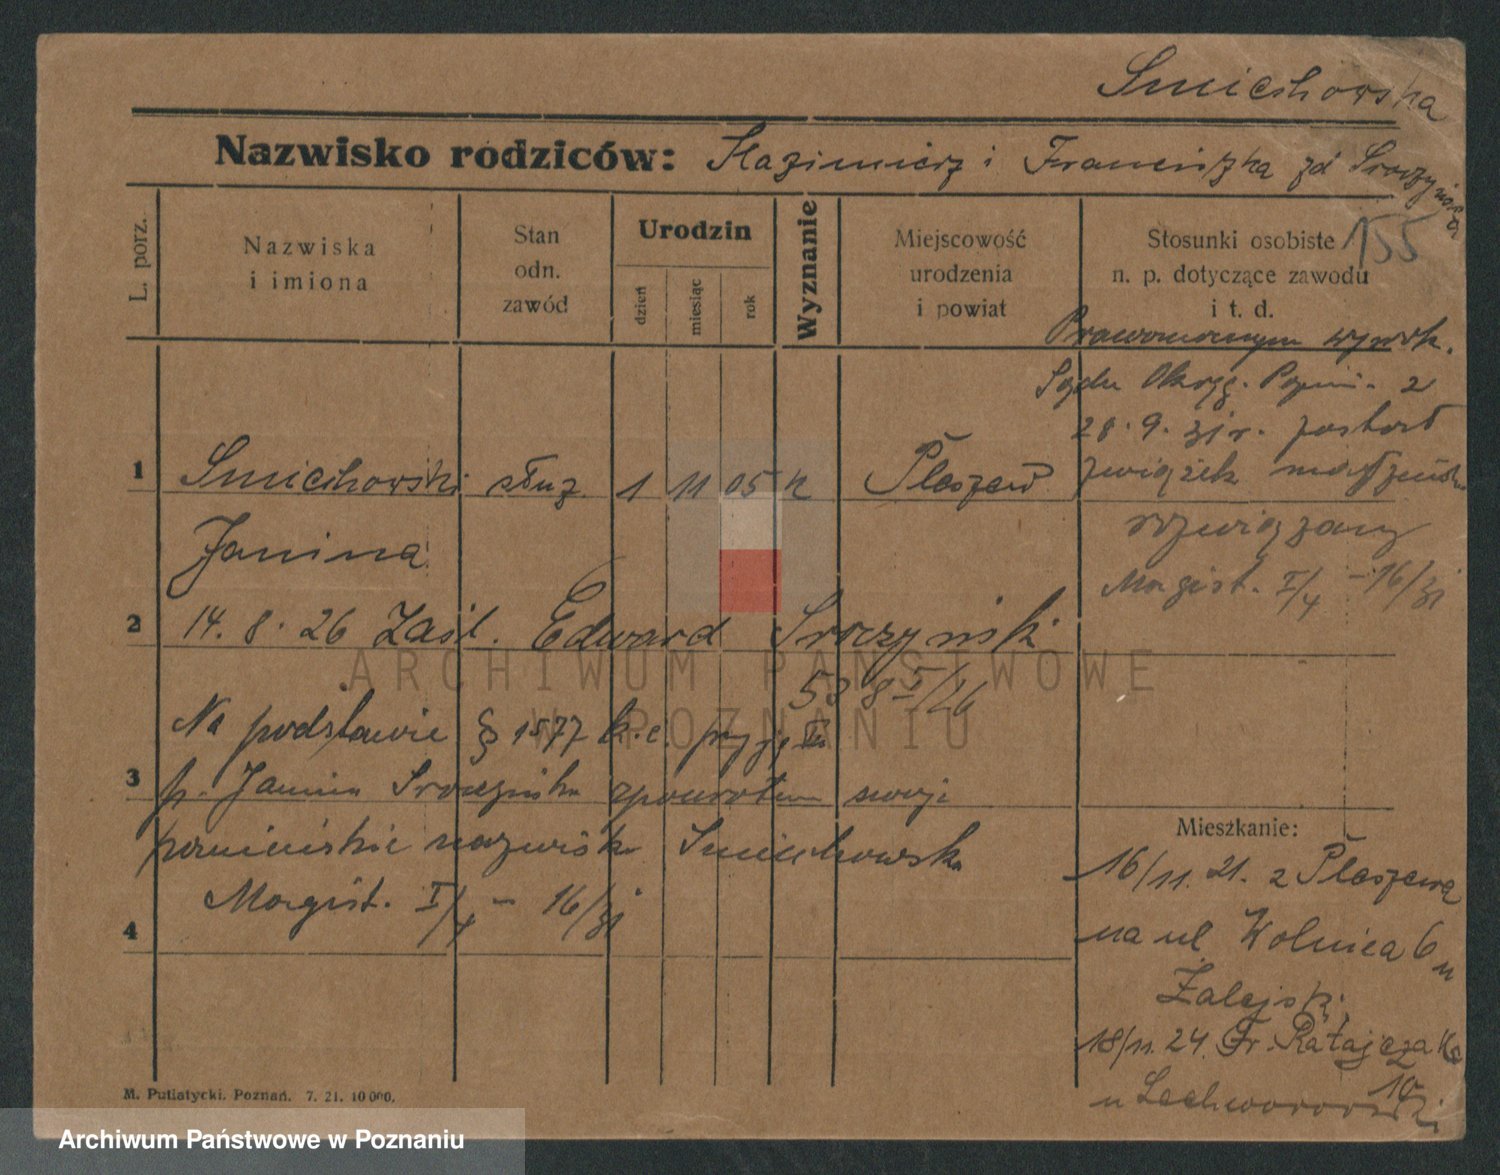 Smiechowska
Nazwisko rodziców: Kazimierz i Franciszka zd Sroczyńska
155
L. porz.
Nazwiska
i imiona
Stan
odn.
zawód
Urodzin
dzień
miesiąc
rok
Wyznanie
Miejscowość
urodzenia
i powiat
Stosunki osobiste
n. p. dotyczące zawodu
i t. d.
Prawomocnym wyrok.
Sądu Okręg. Pozn. z
28.9.31 r. został
związek małżeńsk
rozwiązany
Magist. I/4 - 16/31
1 Smiechowski służ 1 11 05 k Pleszew
Janina
2 14.8.26 Zaśl. Edward Sroczyńsk
538 I/26
Na podstawie § 1577 k.c. przyję
3 p. Janina Sroczyńska zpowrotem swoje
panieńskie nazwisko Smiechowska
Magist. I/4 - 16/31
4
Mieszkanie:
16/11.21. z Pleszewa
na ul Wolnica 6 u
Zalejsk.
18/11.24. Fr. Ratajczaka
10
u
M. Putiatycki. Poznań. 7. 21. 10 000.
ARCHIWUM PAŃSTWOWE
W POZNANIU
Archiwum Państwowe w Poznaniu